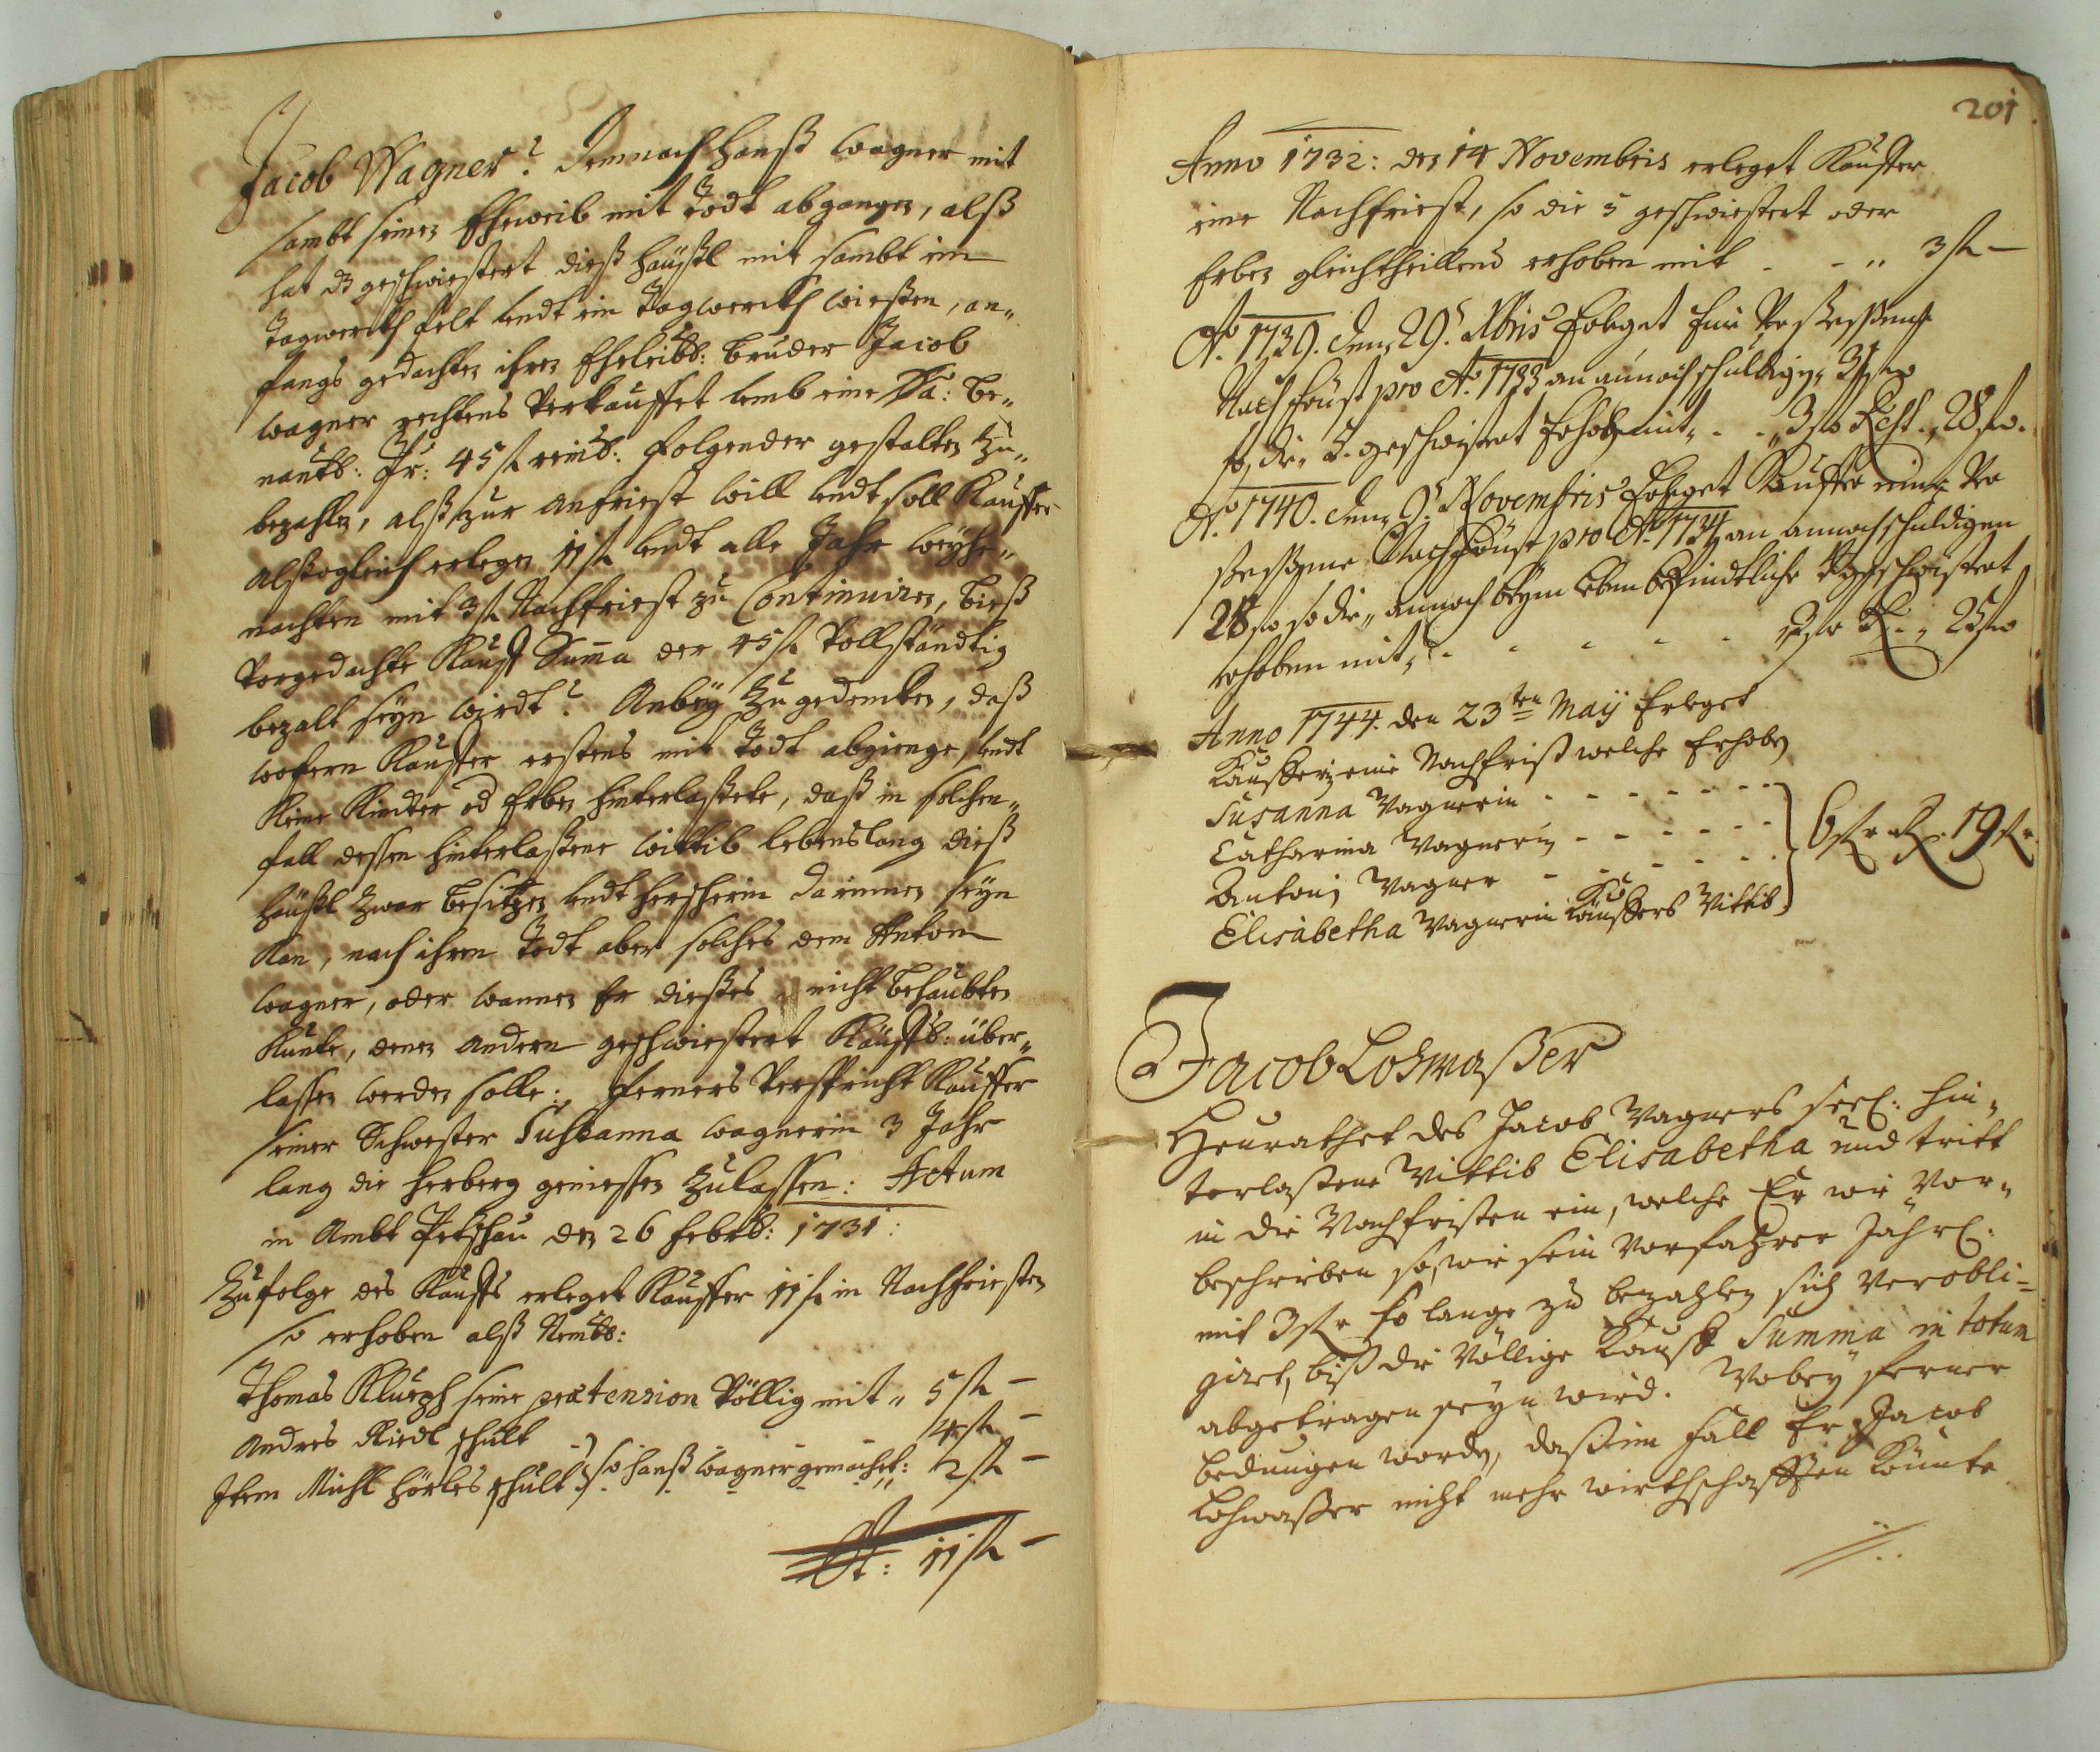 Jacob Wagner: Demnach Hanß Wagner mit
sambt seinen Eheweib mit Todt abgangen, alß
hat d. geschwiestert dieß Häußl mit sambt ein
Tagwerckh felt undt ein Tagwerckh wießen, an„
fangs gedachten ihren Eheleibl: Bruder Jacob
Wagner rechtens Verkauffet umb eine Sa: Be„
nantl: fr: 45 fl reinl: folgender gestalten zu„
bezahlen, alß zur anfriest will undt soll Kauffer
alßogleich erlegen 11 fl undt alle Jahr weyhe„
nachten mit 3 fl Nachfriest zu Continuiren, bieß
Vorgedachte Kauff Suma der 45 fl Vollständtig
bezalt seyn wirdt: Anbey zu gedencken, daß
wofern Kauffer erstens mit Todt abgienge, undt
Keine Kinder od Erben hinterlaßete, daß in solchen„
fall dessen hinterlaßene Wittib lebenslang dieß
Häußl zwar Besitzen undt herscherin darinnen seyn
Kan, nach ihren Todt aber solches dem Antoni
Wagner, oder wannen Er dießes nicht behaubten
Kunte, denen andern geschwiestert Käuffl: über„
lassen werden solle: ferners Verspricht Kauffer
seiner Schwester Sußanna Wagnerin 3 Jahr
lang die Herberg geniessen zulassen: Actum
in Ambt Petschau den 26 Febrl: 1731:
Zufolge des Kauffs erleget Kauffer 11 fl in Nachfriesten
so erhoben alß Neml:
Thomas seine prætension Völlig mit „ 5 fl —
Andres Riedl schult 4 fl —
Item Michl Hörles schult so Hanß Wagner gemachet: 2 fl —
St: 11 fl —
201
Anno 1732: den 14 Novembris erleget Kauffer
eine Nachfriest, so die 5 geschwiestert oder
Erben gleichtheillend erhoben mit - - „ 3 fl —
Ao 1739. den 29. Xbris Erleget Eine Verseßene
Nachfrist pro Ao. 1733 an annoch schuldigen 31 fl
so die 5. geschwistert Erhoben mit „ - - „ 3 fl Rest „ 28 fl.
Ao 1740. den 9. Novembris Erleget Kauffer eine Ver
seßene Nachfrist pro Ao. 1734 an annoch schuldigen
28 fl so die annoch beym leben befindtliche geschwistert
erhoben mit „ - - - - - 3 fl R. „ 25 fl
Anno 1744. den 23ten Maij Erleget
Kaufferin eine Nachfrist welche Erhoben
Susanna Wagnerin - - - - - -
Catharina Wagnerin - - - - - -
Antoni Wagner - - - - - - 6 fl R. 19 fl.
Elisabetha Wagnerin Käuffers Wittib
Jacob Lohwaßer
Heurathet des Jacob Wagners seel: hin„
terlaßene Wittib Elisabetha und tritt
in die Nachfristen ein, welche Er wie Vor„
beschrieben so, wie sein Vorfahrer Jährl:
mit 3 fl so lange zu bezahlen sich verobli=
giret, biß die Völlige Kauff Summa in totum
abgetragen seyn wird. Wobey ferner
bedungen worden, daß im fall Er Jacob
Lohwaßer nicht mehr wirthschafften könnte